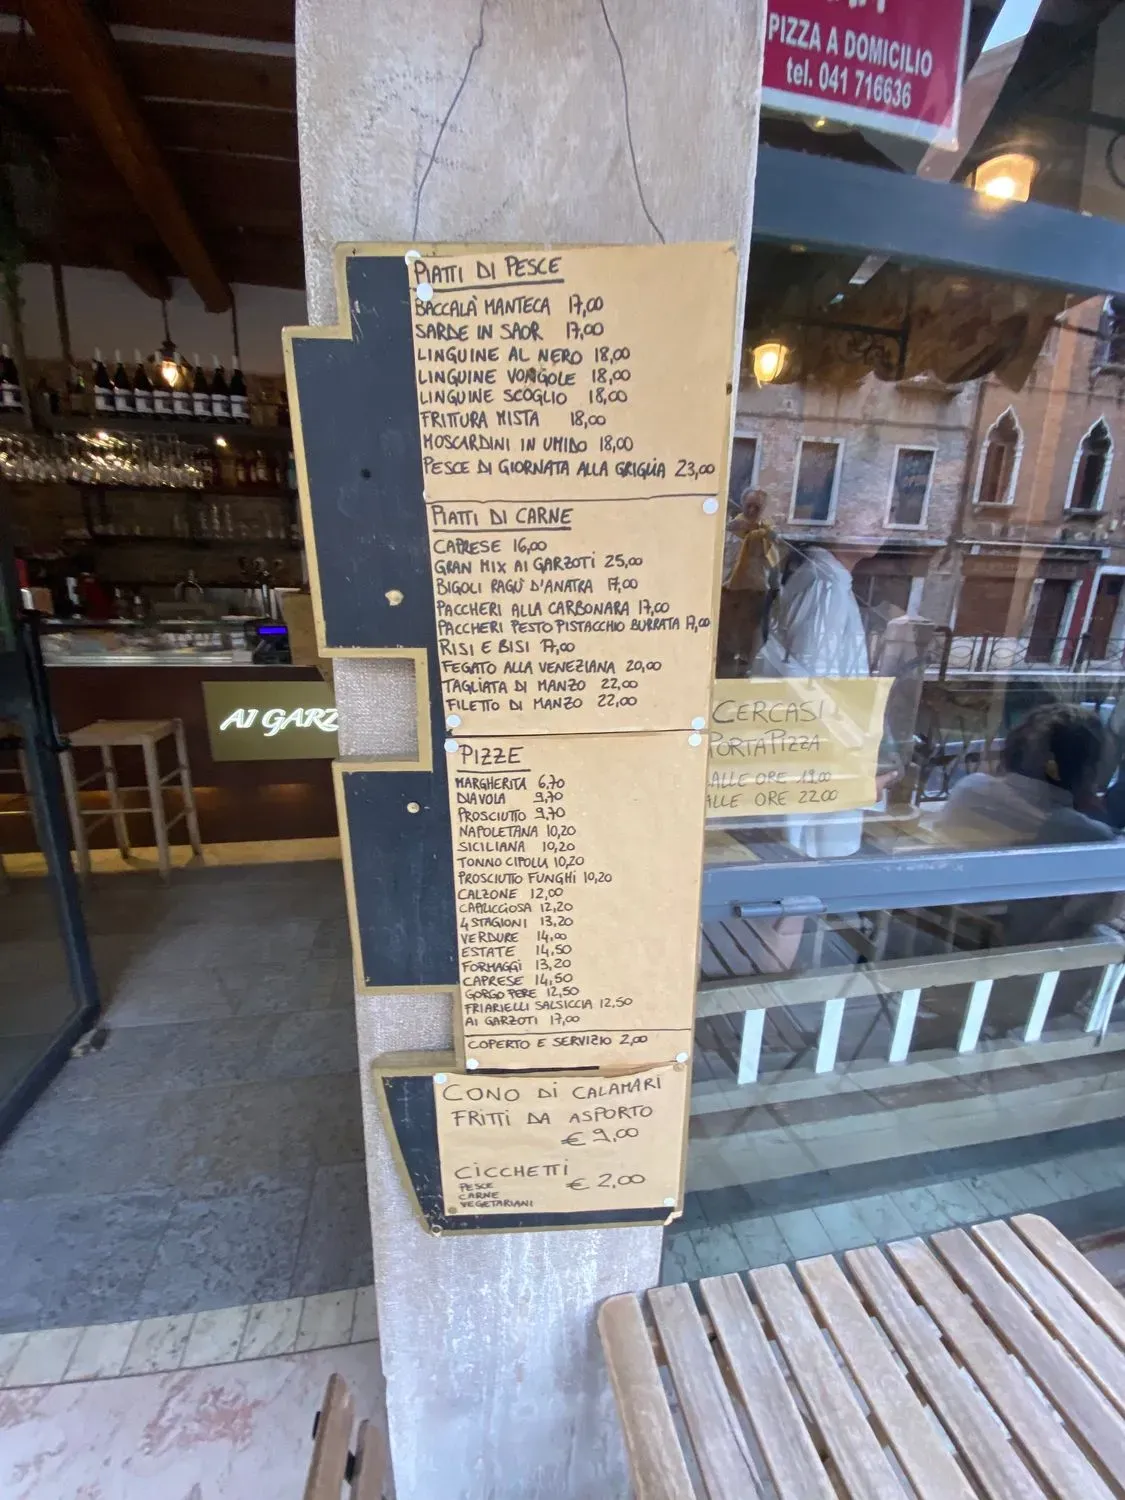 PIZZA A DOMICILIO
tel. 041 716636
PIATTI DI PESCE
BACCALÀ MANTECA 17,00
SARDE IN SAOR 17,00
LINGUINE AL NERO 18,00
LINGUINE VONGOLE 18,00
LINGUINE SCOGLIO 18,00
FRITTURA MISTA 18,00
MOSCARDINI IN UMIDO 18,00
PESCE DI GIORNATA ALLA GRIGLIA 23,00
PIATTI DI CARNE
CAPRESE 16,00
GRAN MIX AI GARZOTI 25,00
BIGOLI RAGÙ D'ANATRA 17,00
PACCHERI ALLA CARBONARA 17,00
PACCHERI PESTO PISTACCHIO BURRATA 17,00
RISI E BISI 17,00
FEGATO ALLA VENEZIANA 20,00
TAGLIATA DI MANZO 22,00
FILETTO DI MANZO 22,00
AI GARZ
CERCASI
PORTAPIZZA
DALLE ORE 19.00
ALLE ORE 22.00
PIZZE
MARGHERITA 6,70
DIAVOLA 9,70
PROSCIUTTO 9,70
NAPOLETANA 10,20
SICILIANA 10,20
TONNO CIPOLLA 10,20
PROSCIUTTO FUNGHI 10,20
CALZONE 12,00
CAPRICCIOSA 12,20
4 STAGIONI 13,20
VERDURE 14,00
ESTATE 14,50
FORMAGGI 13,20
CAPRESE 14,50
GORGO PERE 12,50
FRIARIELLI SALSICCIA 12,50
AI GARZOTI 17,00
COPERTO E SERVIZIO 2,00
CONO DI CALAMARI
FRITTI DA ASPORTO
€ 9,00
CICCHETTI
€ 2,00
PESCE
CARNE
VEGETARIANI